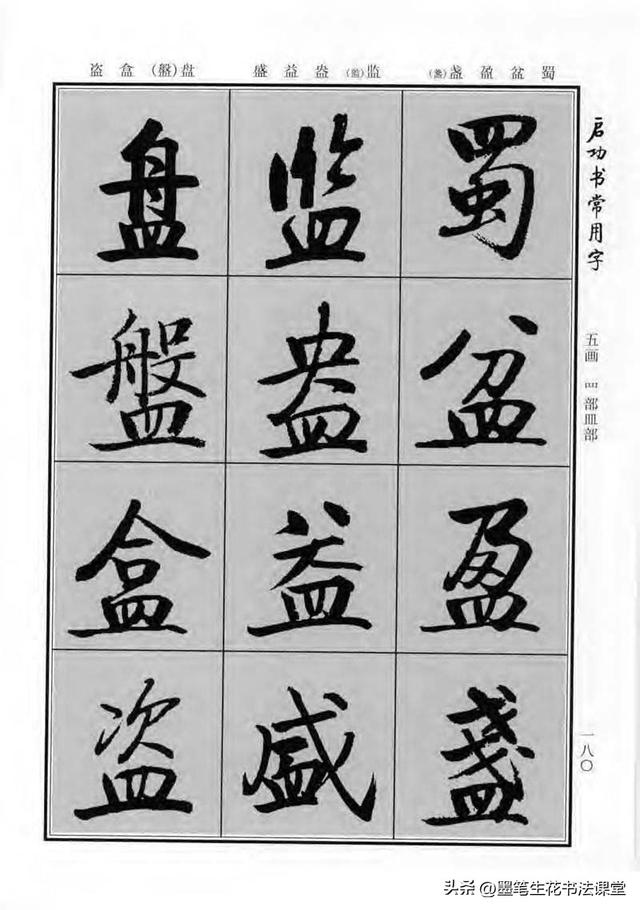 蜀盆盈盏(盞)
监(監)盎益盛
盘(盤)盒盗
启功书常用字
五画 罒部皿部
一八〇
蜀盆盈盞
监盎益盛
盘盤盒盗
头条 @墨笔生花书法课堂